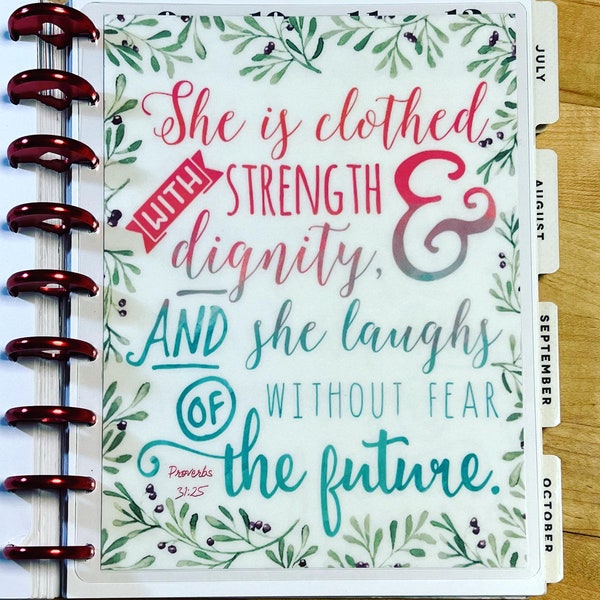 She is clothed
WITH STRENGTH &
dignity,
AND she laughs
OF WITHOUT FEAR
the future.
Proverbs
31:25
JULY
AUGUST
SEPTEMBER
OCTOBER